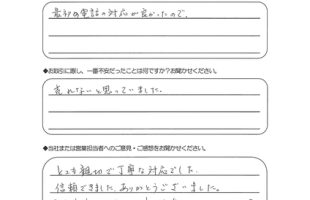 最初の電話の対応が良かったので、
◆お取引に際し、一番不安だったことは何ですか？お聞かせください。
売れないと思っていました。
◆当社または営業担当者へのご意見・ご感想をお聞かせください。
とても親切で丁寧な対応でした。
信頼できました。ありがとうございました。